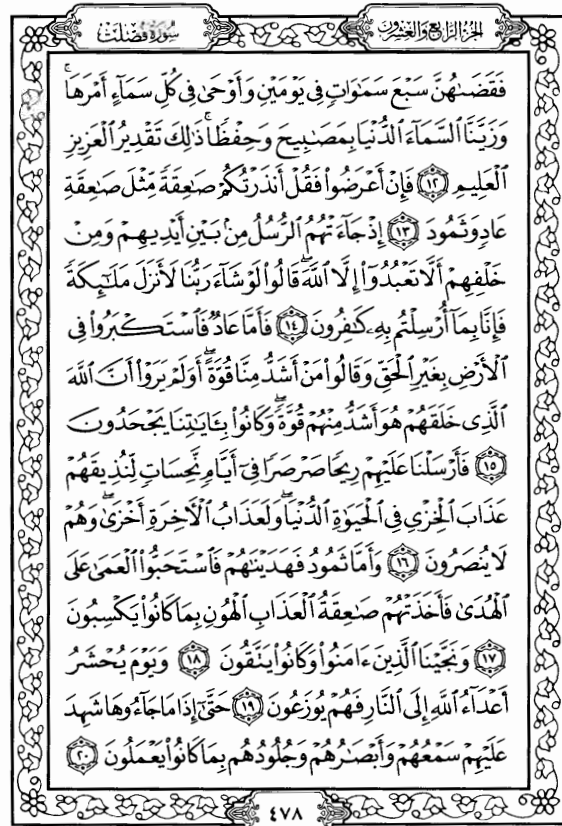 سُورَةُ فُصِّلَتْ
الجُزْءُ الرَّابِعُ وَالعِشْرُونَ
فَقَضَىٰهُنَّ سَبْعَ سَمَٰوَاتٖ فِي يَوْمَيْنِ وَأَوْحَىٰ فِي كُلِّ سَمَآءٍ أَمْرَهَاۚ
وَزَيَّنَّا ٱلسَّمَآءَ ٱلدُّنْيَا بِمَصَٰبِيحَ وَحِفْظٗاۚ ذَٰلِكَ تَقْدِيرُ ٱلْعَزِيزِ
ٱلْعَلِيمِ ١٢ فَإِنْ أَعْرَضُوا۟ فَقُلْ أَنذَرْتُكُمْ صَٰعِقَةٗ مِّثْلَ صَٰعِقَةِ
عَادٖ وَثَمُودَ ١٣ إِذْ جَآءَتْهُمُ ٱلرُّسُلُ مِنۢ بَيْنِ أَيْدِيهِمْ وَمِنْ
خَلْفِهِمْ أَلَّا تَعْبُدُوٓا۟ إِلَّا ٱللَّهَۖ قَالُوا۟ لَوْ شَآءَ رَبُّنَا لَأَنزَلَ مَلَٰٓئِكَةٗ
فَإِنَّا بِمَآ أُرْسِلْتُم بِهِۦ كَٰفِرُونَ ١٤ فَأَمَّا عَادٞ فَٱسْتَكْبَرُوا۟ فِي
ٱلْأَرْضِ بِغَيْرِ ٱلْحَقِّ وَقَالُوا۟ مَنْ أَشَدُّ مِنَّا قُوَّةًۖ أَوَلَمْ يَرَوْا۟ أَنَّ ٱللَّهَ
ٱلَّذِي خَلَقَهُمْ هُوَ أَشَدُّ مِنْهُمْ قُوَّةٗۖ وَكَانُوا۟ بِـَٔايَٰتِنَا يَجْحَدُونَ
١٥ فَأَرْسَلْنَا عَلَيْهِمْ رِيحٗا صَرْصَرٗا فِيٓ أَيَّامٖ نَّحِسَاتٖ لِّنُذِيقَهُمْ
عَذَابَ ٱلْخِزْيِ فِي ٱلْحَيَوٰةِ ٱلدُّنْيَاۖ وَلَعَذَابُ ٱلْأٓخِرَةِ أَخْزَىٰۖ وَهُمْ
لَا يُنصَرُونَ ١٦ وَأَمَّا ثَمُودُ فَهَدَيْنَٰهُمْ فَٱسْتَحَبُّوا۟ ٱلْعَمَىٰ عَلَى
ٱلْهُدَىٰ فَأَخَذَتْهُمْ صَٰعِقَةُ ٱلْعَذَابِ ٱلْهُونِ بِمَا كَانُوا۟ يَكْسِبُونَ
١٧ وَنَجَّيْنَا ٱلَّذِينَ ءَامَنُوا۟ وَكَانُوا۟ يَتَّقُونَ ١٨ وَيَوْمَ يُحْشَرُ
أَعْدَآءُ ٱللَّهِ إِلَى ٱلنَّارِ فَهُمْ يُوزَعُونَ ١٩ حَتَّىٰٓ إِذَا مَا جَآءُوهَا شَهِدَ
عَلَيْهِمْ سَمْعُهُمْ وَأَبْصَٰرُهُمْ وَجُلُودُهُم بِمَا كَانُوا۟ يَعْمَلُونَ ٢٠
٤٧٨